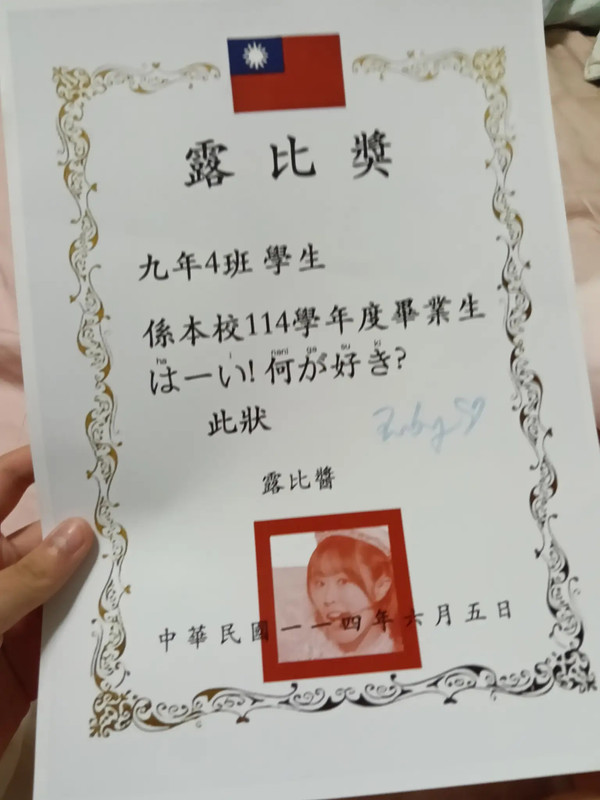 露比獎
九年4班 學生
係本校114學年度畢業生
ha i nani ga su ki
はーい!何が好き?
此狀
Ruby
露比醬
中華民國一一四年六月五日